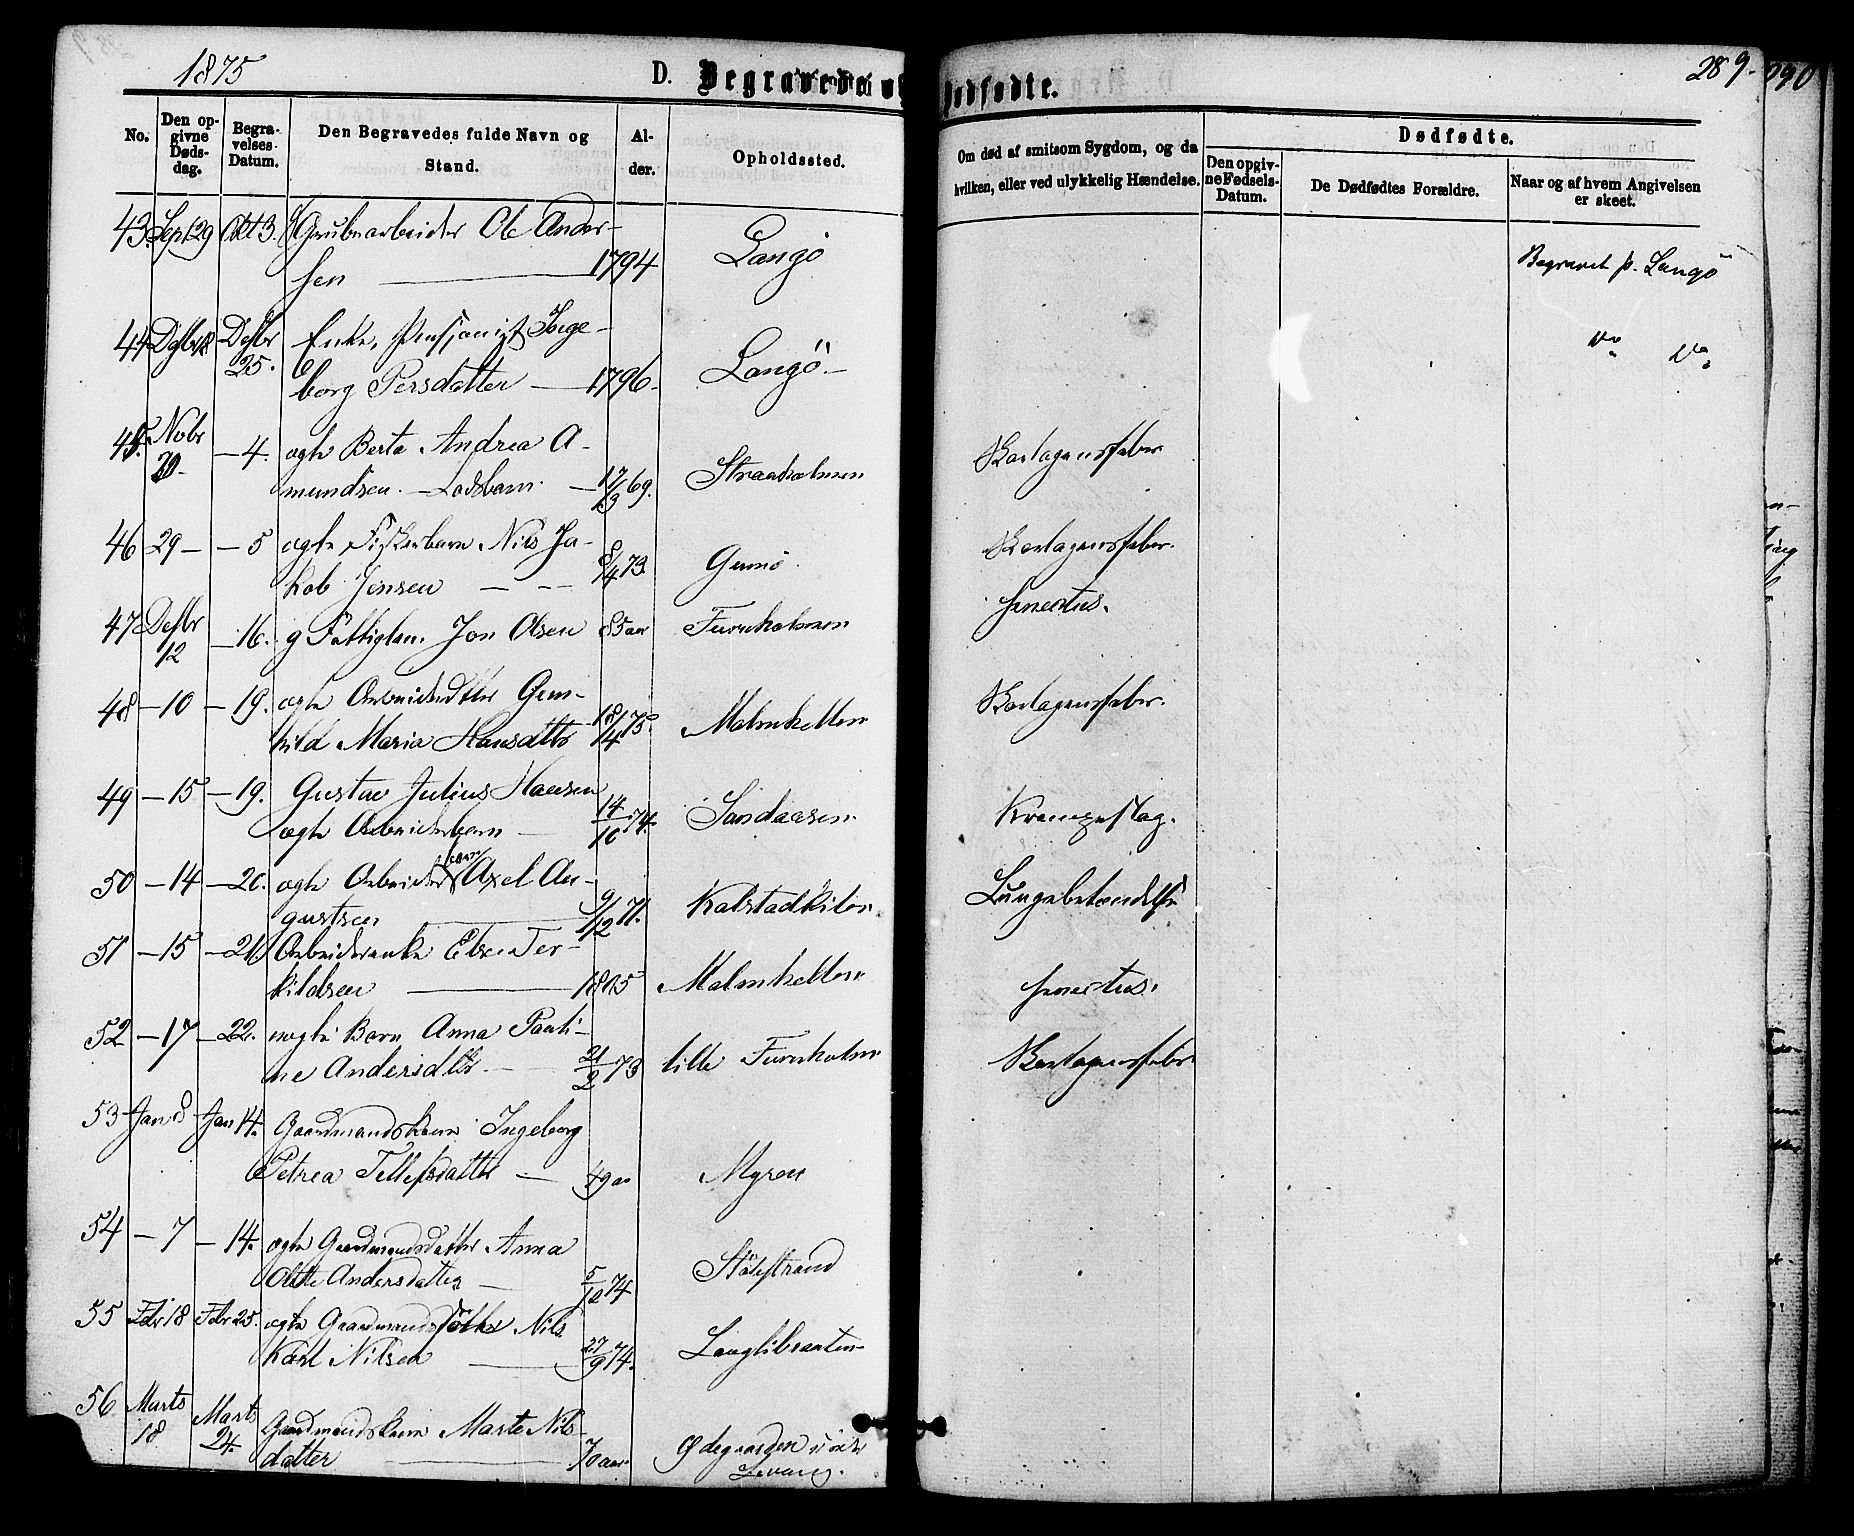 1875
D. Begravede og Dødfødte.
289.
290
No.
Den opgivne Dødsdag.
Begravelses-Datum.
Den Begravedes fulde Navn og Stand.
Alder.
Opholdssted.
Om død af smitsom Sygdom, og da hvilken, eller ved ulykkelig Hændelse.
Dødfødte.
Den opgivne Fødsels-Datum.
De Dødfødtes Forældre.
Naar og af hvem Angivelsen er skeet.
43. Sept 29 Okt 3. Grubearbeider Ole Ander-
sen — 1794 Langö Begravet p. Langö
44 Desbr Enke, Pensjonist Inge-
25.
borg Persdatter — 1796. Langö. —
45. Novbr 20. — 4. ægte Berte Andrea A-
mundsen. — Lodsbarn. — 17/3 69. Straaholmen Skarlagensfeber
46 29 — — 5 ægte Fiskerbarn Nils Ja-
kob Jensen — — 8/4 73. Gumö. Skarlagensfeber.
47 Desbr 12 — 16. g Fattiglem. Jon Olsen 85 aar Furuholmen senectus.
48 — 10 — 19. ægte Arbeiderdtter Gun-
hild Maria Hansdtter 18/4 75. Malmhellen Skarlagensfeber.
49 — 15 — 19. Gustav Julius Hansen
ægte Arbeiderbarn — 14/10 74. Sandaasen Krampeslag.
50 — 14 — 20. ægte Arbeiderbarn Axel Au-
gustsen — 9/12 71. Kalstadkilen. Lungebetændelse
51 — 15 — 21. Arbeiderenke Elsa Ter-
kildsen — 1805 Malmhellen senectus.
52 — 17 — 22. uægte Barn Anna Pauli-
ne Andersdtter — 21/2 73 lille Furuholmen Skarlagensfeber.
53 Jan 8 Jan 14. Gaardmandskone Ingeborg
Petrea Tellefsdatter — 49 aar Myren
54 — 7 — 14. ægte Gaardmandsdatter Anna
Olette Andersdatter — 5/12 74 Stölestrand
55 Febr 18 Febr 25. ægte Gaardmands Nils
Karl Nilsen — 27/9 74. Langlibraaten
56 Marts 18 Marts 24. Gaardmandskone Marte Nils-
datter — 70 aar. Ødegaarden